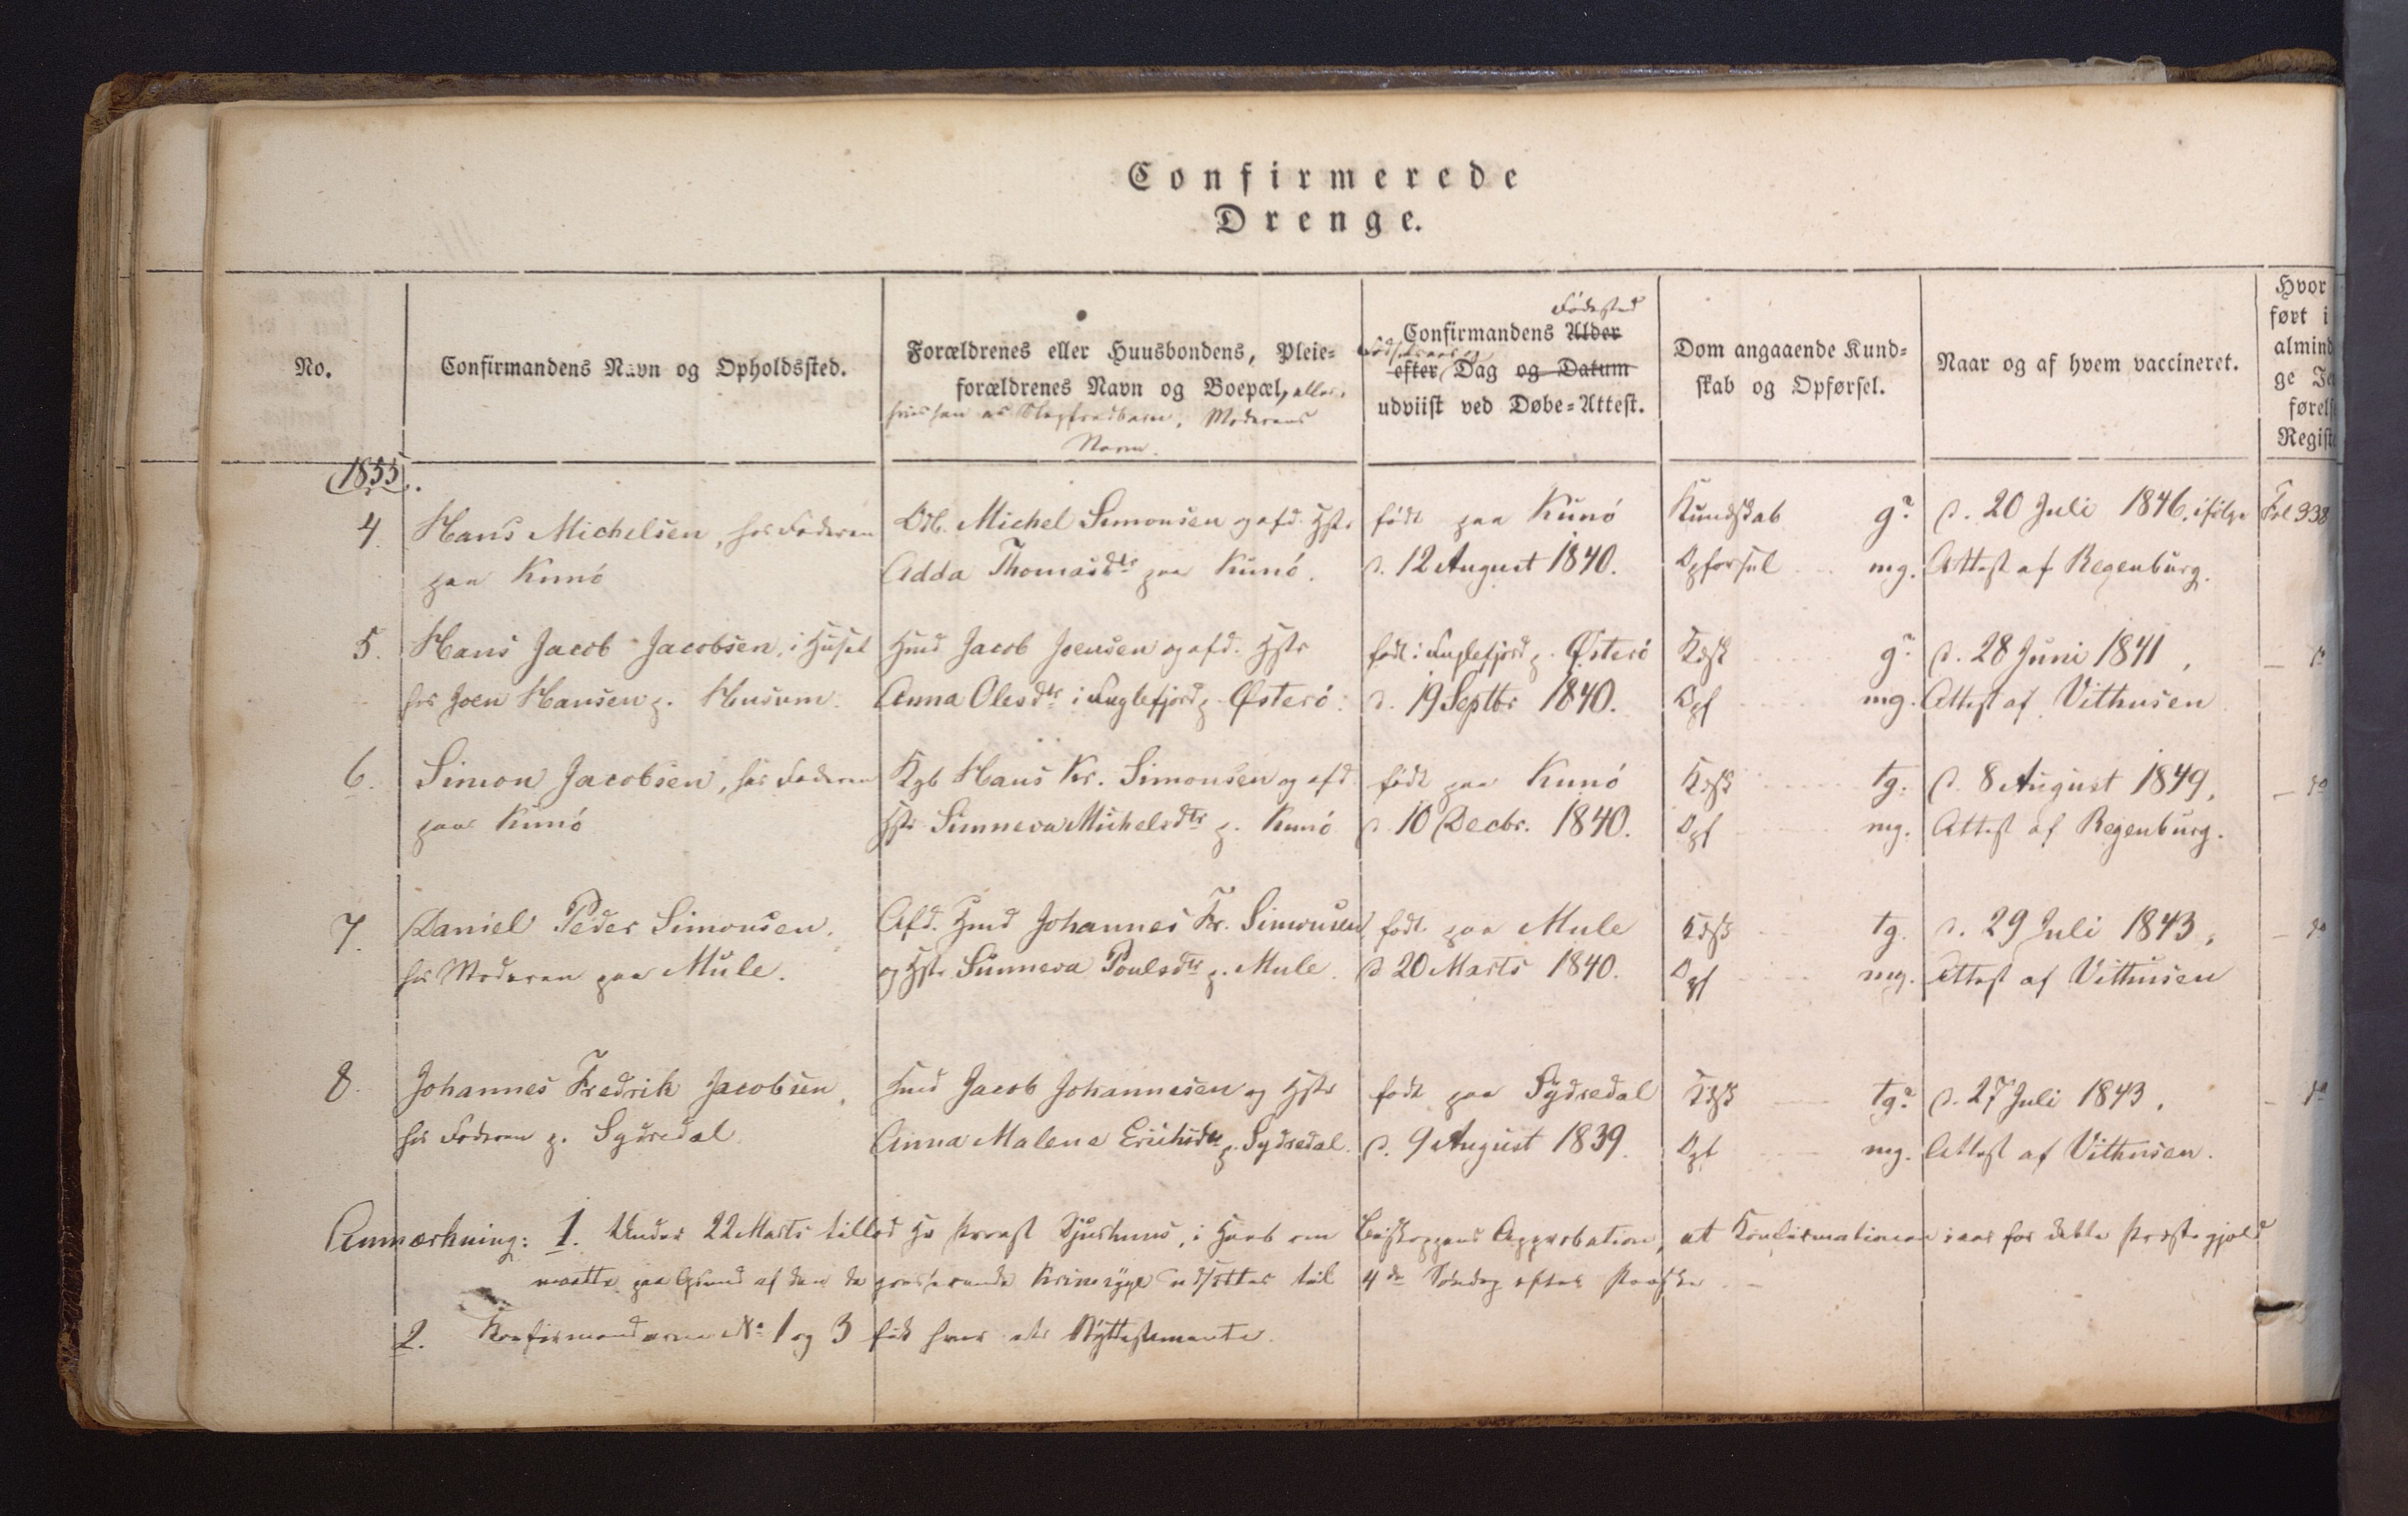 Confirmerede
Drenge.
No.
Confirmandens Navn og Opholdssted.
Forældrenes eller Huusbondens, Pleie=
forældrenes Navn og Boepæl, eller,
hvis han er Slegfredbarn, Moderens
Navn.
Fødested
Confirmandens Alder
Fødselsaar og
efter Dag og Datum
udviist ved Døbe=Attest.
Dom angaaende Kund=
skab og Opførsel.
Naar og af hvem vaccineret.
Hvor
ført i
almind
ge Je
førels
Regist
1855.
4. Hans Michelsen, hos Faderen
paa Kunö
Odb. Michel Simonsen og afd. Hstr
Adda Thomasdtr paa Kunö.
født paa Kunö
d. 12 August 1840.
Kundskab g?
Opførsel mg.
d. 20 Juli 1846, ifølge
Attest af Regenburg.
Fol 338
5. Hans Jacob Jacobsen, i Huset
hos Joen Hansen p. Husum.
Hmd Jacob Joensen og afd. Hstr
Anna Olesdtr i Fuglefjord p. Østerö.
født i Fuglefjord p. Østerö
d. 19 Septbr 1840.
Kdsk g?
Opf mg.
d. 28 Juni 1841,
Attest af Vithusen
— do
6. Simon Jacobsen, hos Faderen
paa Kunö
Kgb Hans Kr. Simonsen og afd.
Hstr Sunneva Michelsdtr p. Kunö
født paa Kunö
d. 10 Decbr. 1840.
Kdsk tg.
Opf mg.
d. 8 August 1849,
Attest af Regenburg.
— do
7. Daniel Peder Simonsen,
hos Moderen paa Mule.
Afd. Hmd Johannes Fr. Simonsen
og Hstr Sunneva Poulsdtr p. Mule.
født paa Mule
d 20 Marts 1840.
Kdsk tg.
Opf mg.
d. 29 Juli 1843,
Attest af Vithusen
— do
8. Johannes Fredrik Jacobsen,
hos Faderen p. Sydredal
Hmd Jacob Johannesen og Hstr
Anna Malene Erichsdtr p. Sydredal.
født paa Sydredal
d. 9 August 1839.
Kdsk tg?
Opf mg.
d. 27 Juli 1843,
Attest af Vithusen.
— do
Anmærkning: 1. Under 22 Marts tillod Hr Provst Djurhuus, i Haab om Biskoppens Approbation, at Konfirmationen i aar for dette Præstegjæld
maatte paa Grund af den da grasserende udsættes til 4de Søndag efter Paaske. —
2. Konfirmanderne No 1 og 3 fik hver et Nyttestamente.